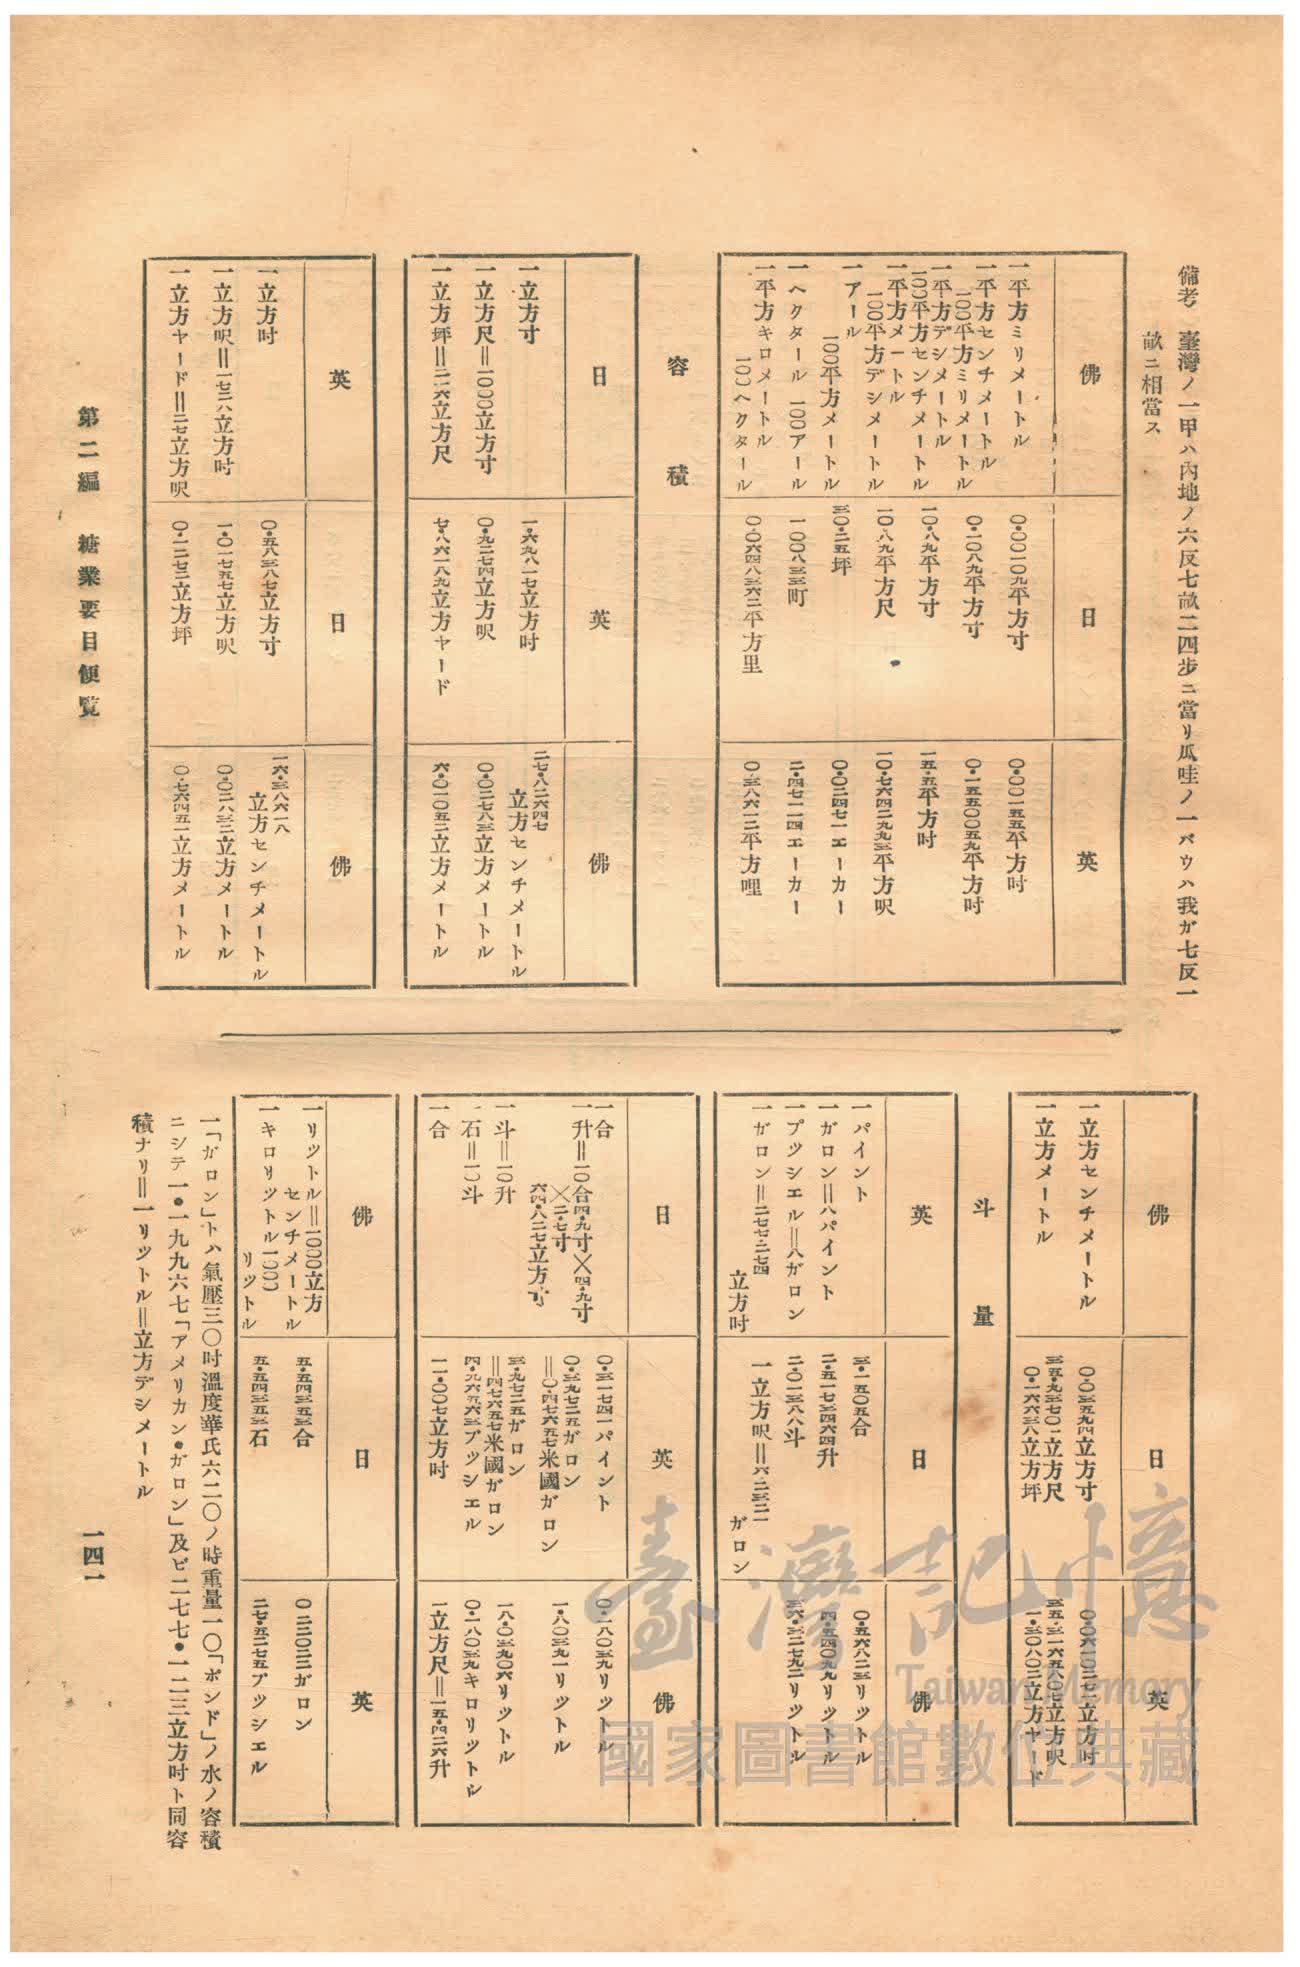 備考 臺灣ノ一甲ハ內地ノ六反七畝二四步ニ當リ瓜哇ノ一バウハ我ガ七反一
畝ニ相當ス
佛
一平方ミリメートル
一平方センチメートル
一〇〇平方ミリメートル
一平方デシメートル
一〇〇平方センチメートル
一平方メートル
一〇〇平方デシメートル
一アール
一〇〇平方メートル
一ヘクタール 一〇〇アール
一平方キロメートル
一〇〇ヘクタール
日
〇・〇〇一〇九平方寸
〇・一〇八九平方寸
一〇・八九平方寸
一〇・八九平方尺
三〇・二五坪
一・〇〇八三三町
〇・〇六四八三六二平方里
英
〇・〇〇一五五平方吋
〇・一五五〇〇五九平方吋
一五・五平方吋
一〇・七六四二九九三平方呎
〇・〇二四七一エーカー
二・四七一一四エーカー
〇・三八六一二平方哩
容積
日
一立方寸
一立方尺＝一〇〇〇立方寸
一立方坪＝二一六立方尺
英
一・六九八一七立方吋
〇・九二七四立方呎
七・八六一八九立方ヤード
佛
二七・八二六四七
立方センチメートル
〇・〇二七八三立方メートル
六・〇一〇五二立方メートル
英
一立方吋
一立方呎＝一七二八立方吋
一立方ヤード＝二七立方呎
日
〇・五八三八七立方寸
一・〇一七五七立方呎
〇・一二七二立方坪
佛
一六・三八六一八
立方センチメートル
〇・〇二八三二立方メートル
〇・七六四五一立方メートル
佛
一立方センチメートル
一立方メートル
日
〇・〇三五九四立方寸
三五・九三七〇一立方尺
〇・一六六三八立方坪
英
〇・〇六一〇二七二立方吋
三五・三一六五八〇七立方呎
一・三〇八〇二立方ヤード
斗量
英
一パイント
一ガロン＝八パイント
一ブツシエル＝八ガロン
一ガロン＝二七七・二七四
立方吋
日
三・一五〇五合
二・五一七三四六四升
二・〇一三八八斗
一立方呎＝六・二三二一
ガロン
佛
〇・五六八二三リツトル
四・五四〇九九リツトル
三六・三二七九二リツトル
日
一合
一升＝一〇合四・九寸×四・九寸
×二・七寸
六四・八二七立方寸
一斗＝一〇升
一石＝一〇斗
一合
英
〇・三一七四一パイント
〇・三九七二五ガロン
＝〇・四七六五七米國ガロン
三・九七二五ガロン
＝四・七六五七米國ガロン
四・九六五六三ブツシエル
一一・〇〇七立方吋
佛
〇・一八〇三九リツトル
一・八〇三九一リツトル
一八・〇三九〇六リツトル
〇・一八〇三九キロリツトル
一立方尺＝一五・四二六升
佛
一リツトル＝一〇〇〇立方
センチメートル
一キロリツトル一〇〇〇
リツトル
日
五・五四三五三合
五・五四三五三石
英
〇・二二〇二二ガロン
二七・五二七五ブツシエル
一「ガロン」トハ氣壓三〇吋溫度華氏六二〇ノ時重量一〇「ポンド」ノ水ノ容積
ニシテ一・一九九六七「アメリカン・ガロン」及ビ二七七・一二三立方吋ト同容
積ナリ＝一リツトル＝立方デシメートル
第二編 糖業要目便覧
一四一
臺灣記憶
Taiwan Memory
國家圖書館數位典藏